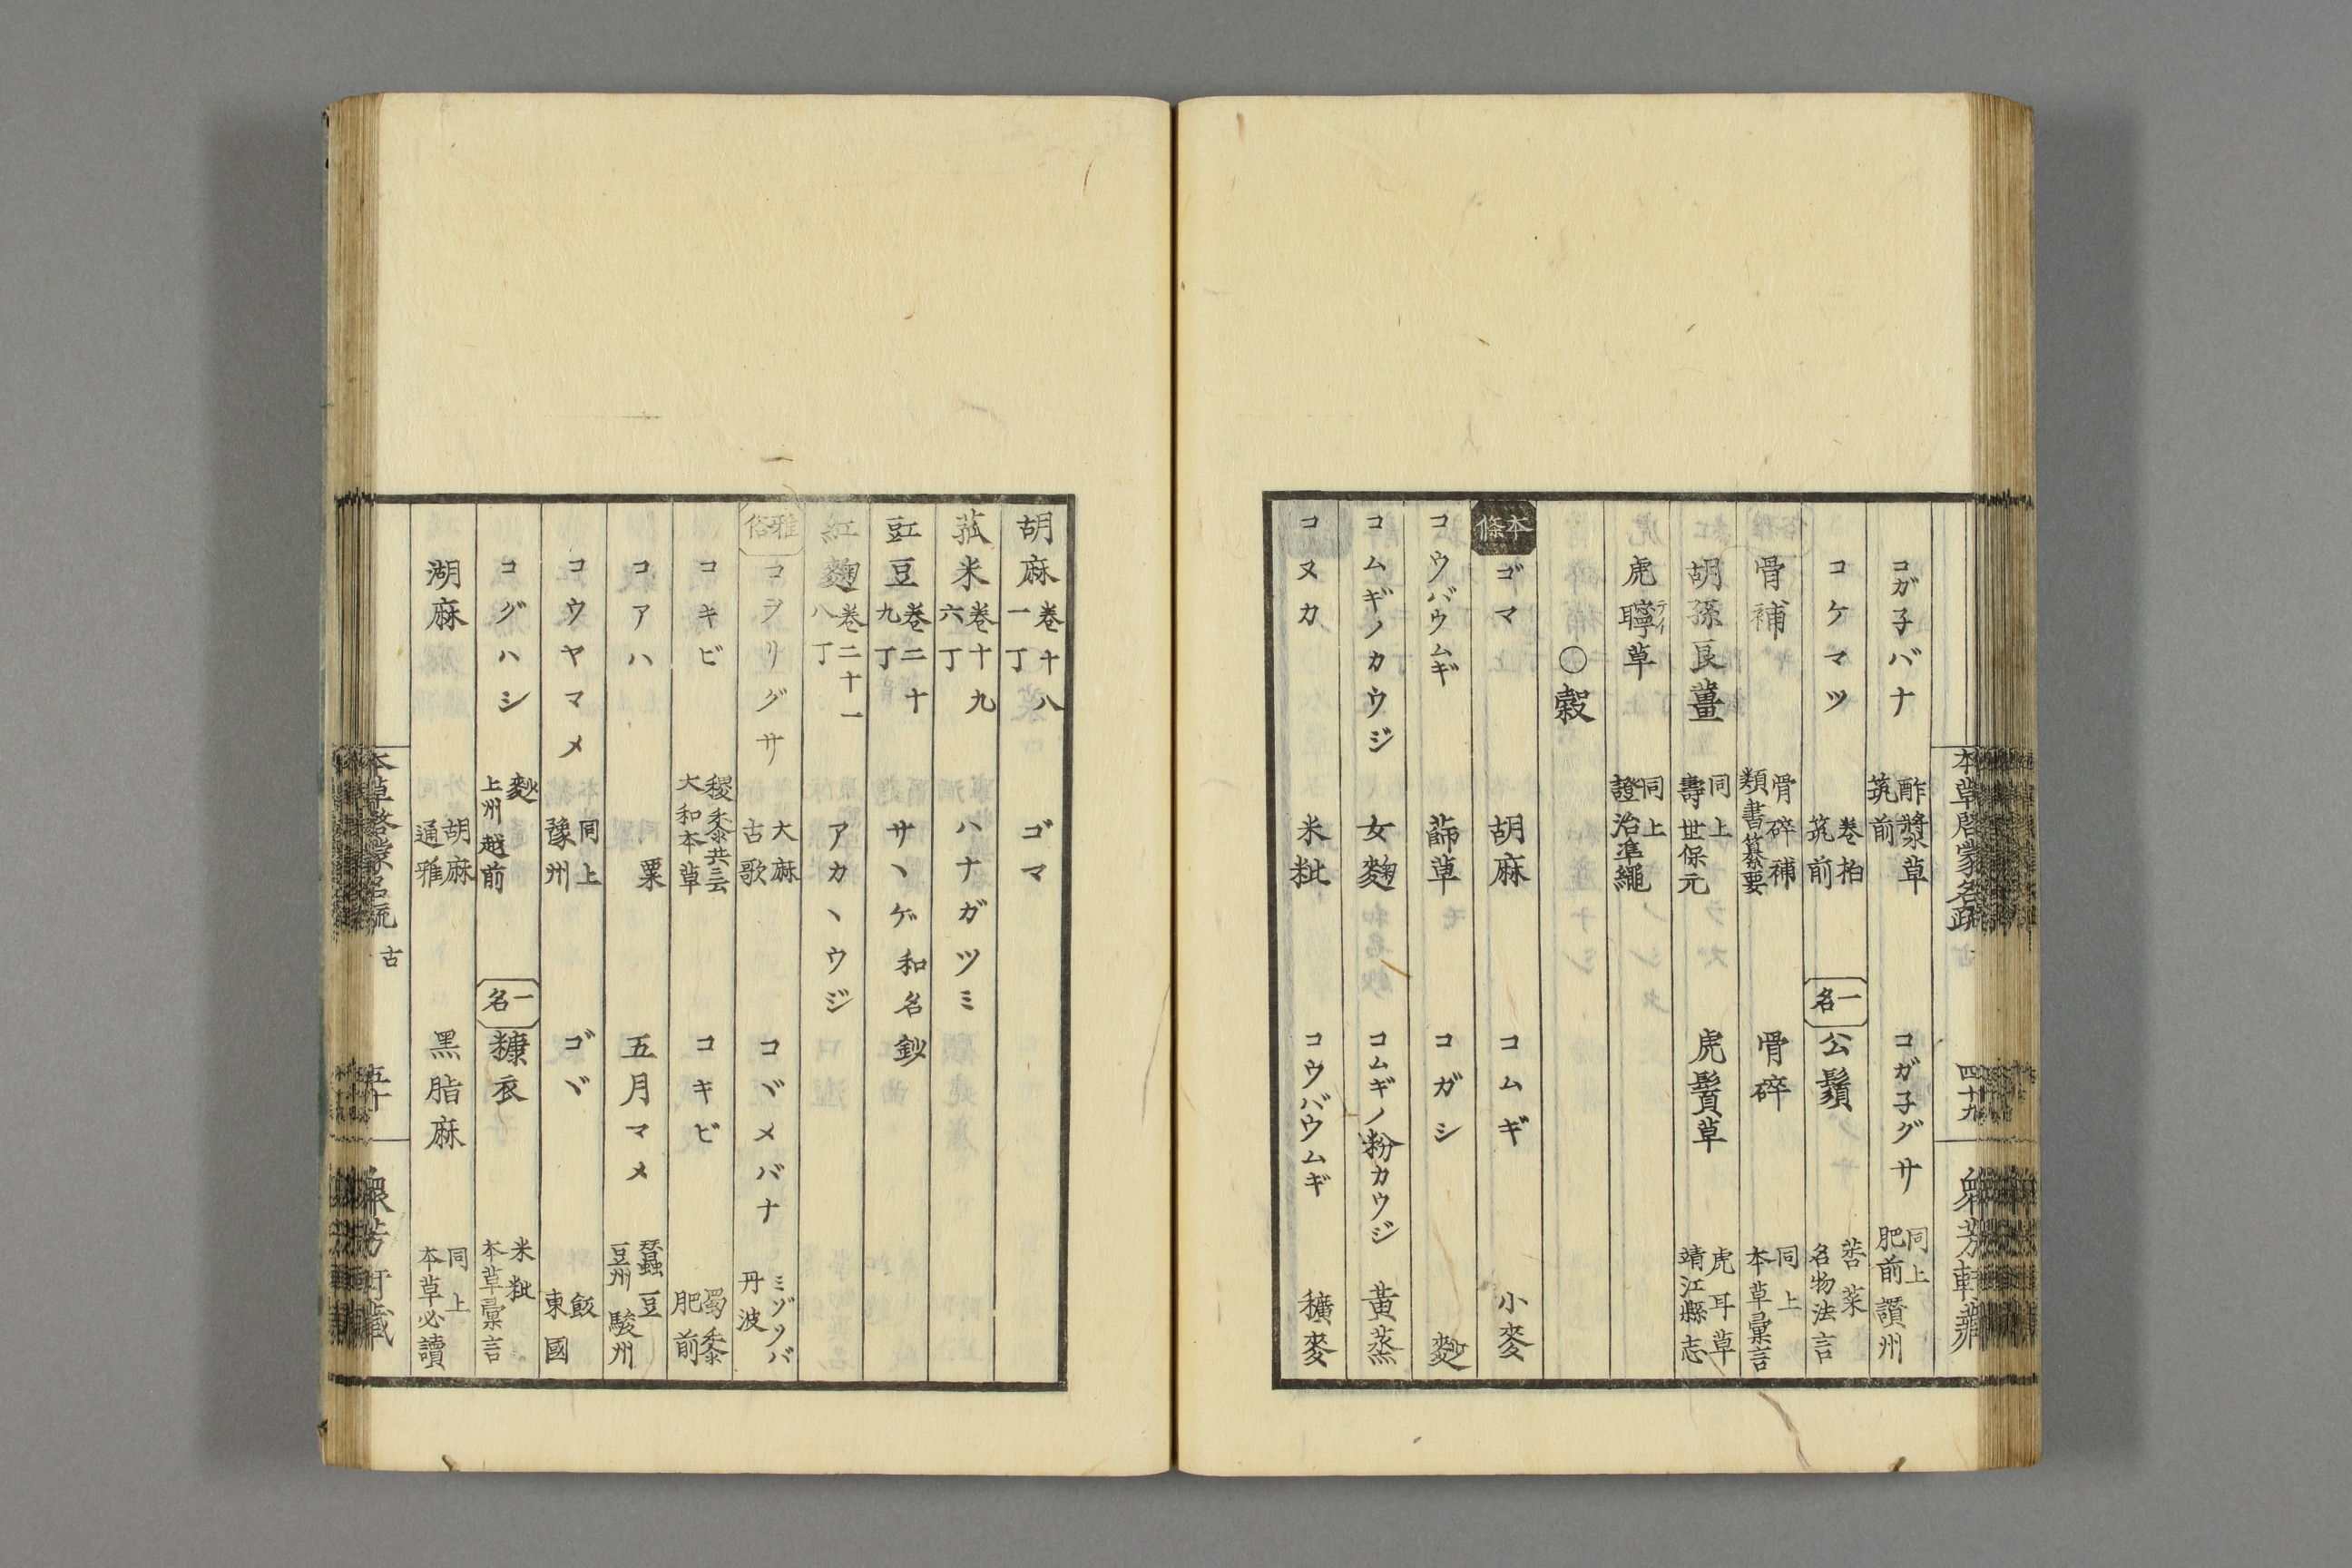 本草啓蒙名疏 古 四十九 衆芳軒藏
コガ子バナ 酢漿草 筑前 コガ子グサ 同上 肥前 讃州
コケマツ 巻柏 筑前 一名 公鬚 菾菜 名物法言
骨補 骨碎補 類書纂要 骨碎 同上 本草彙言
胡孫良薑 同上 壽世保元 虎鬚草 虎耳草 靖江縣志
虎聹草 テイ 同上 證治準繩
〇穀
本條 ゴマ 胡麻 コムギ 小麥
コウバウムギ 蒒草 コガシ 麨
コムギノカウジ 女麴 コムギノ粉カウジ 黃蒸
コヌカ 米粃 コウバウムギ 穬麥
胡麻 巻十八 一丁 ゴマ
菰米 巻十九 六丁 ハナガツミ
豇豆 巻二十 九丁 サヽゲ 和名鈔
紅麴 巻二十一 八丁 アカヽウジ
雅俗 コヲリグサ 大麻 古歌 コヾメバナ ミゾソバ 丹波
コキビ 稷黍共云 大和本草 コキビ 蜀黍 肥前
コアハ 粟 五月マメ 蠶豆 豆州 駿州
コウヤマメ 同上 豫州 ゴヾ 飯 東國
コグハシ 麨 上州 越前 一名 糠衣 米粃 本草彙言
湖麻 胡麻 通雅 黑脂麻 同上 本草必讀
本草啓蒙名疏 古 五十 衆芳軒藏